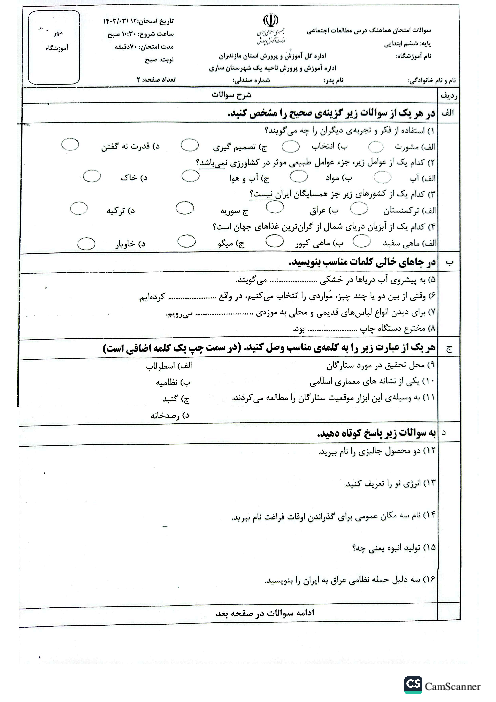 سوالات امتحان هماهنگ درس مطالعات اجتماعی
پایه: ششم ابتدایی
نام آموزشگاه:
نام و نام خانوادگی:
اداره کل آموزش و پرورش استان مازندران
اداره آموزش و پرورش ناحیه یک شهرستان ساری
نام پدر:
شماره صندلی:
تاریخ امتحان: ۱۴۰۲/۰۳/۱۲
ساعت شروع: ۱۰:۳۰ صبح
مدت امتحان: ۷۰دقیقه
نوبت: صبح
تعداد صفحه: ۲
مهر
آموزشگاه
ردیف
شرح سوالات
الف در هر یک از سوالات زیر گزینه‌ی صحیح را مشخص کنید.
۱) استفاده از فکر و تجربه‌ی دیگران را چه می‌گویند؟
الف) مشورت ب) انتخاب ج) تصمیم گیری د) قدرت نه گفتن
۲) کدام یک از عوامل زیر، جزء عوامل طبیعی موثر در کشاورزی نمی‌باشد؟
الف) آب ب) مواد ج) آب و هوا د) خاک
۳) کدام یک از کشورهای زیر جز همسایگان ایران نیست؟
الف) ترکمنستان ب) عراق ج) سوریه د) ترکیه
۴) کدام یک از آبزیان دریای شمال از گران‌ترین غذاهای جهان است؟
الف) ماهی سفید ب) ماهی کپور ج) میگو د) خاویار
ب در جاهای خالی کلمات مناسب بنویسید.
۵) به پیشروی آب دریاها در خشکی .................... می‌گویند.
۶) وقتی از بین دو یا چند چیز، مواردی را انتخاب می‌کنیم، در واقع .................... کرده‌ایم.
۷) برای دیدن انواع لباس‌های قدیمی و محلی به موزه‌ی .................... می‌رویم.
۸) مخترع دستگاه چاپ .................... بود.
ج هر یک از عبارت زیر را به کلمه‌ی مناسب وصل کنید. (در سمت چپ یک کلمه اضافی است)
۹) محل تحقیق در مورد ستارگان الف) اسطرلاب
۱۰) یکی از نشانه های معماری اسلامی ب) نظامیه
۱۱) به وسیله‌ی این ابزار موقعیت ستارگان را مطالعه می‌کردند. ج) گنبد
د) رصدخانه
د به سوالات زیر پاسخ کوتاه دهید.
۱۲) دو محصول جالیزی را نام ببرید.
۱۳) انرژی نو را تعریف کنید.
۱۴) نام سه مکان عمومی برای گذراندن اوقات فراغت نام ببرید.
۱۵) تولید انبوه یعنی چه؟
۱۶) سه دلیل حمله نظامی عراق به ایران را بنویسید.
ادامه سوالات در صفحه بعد
CS CamScanner